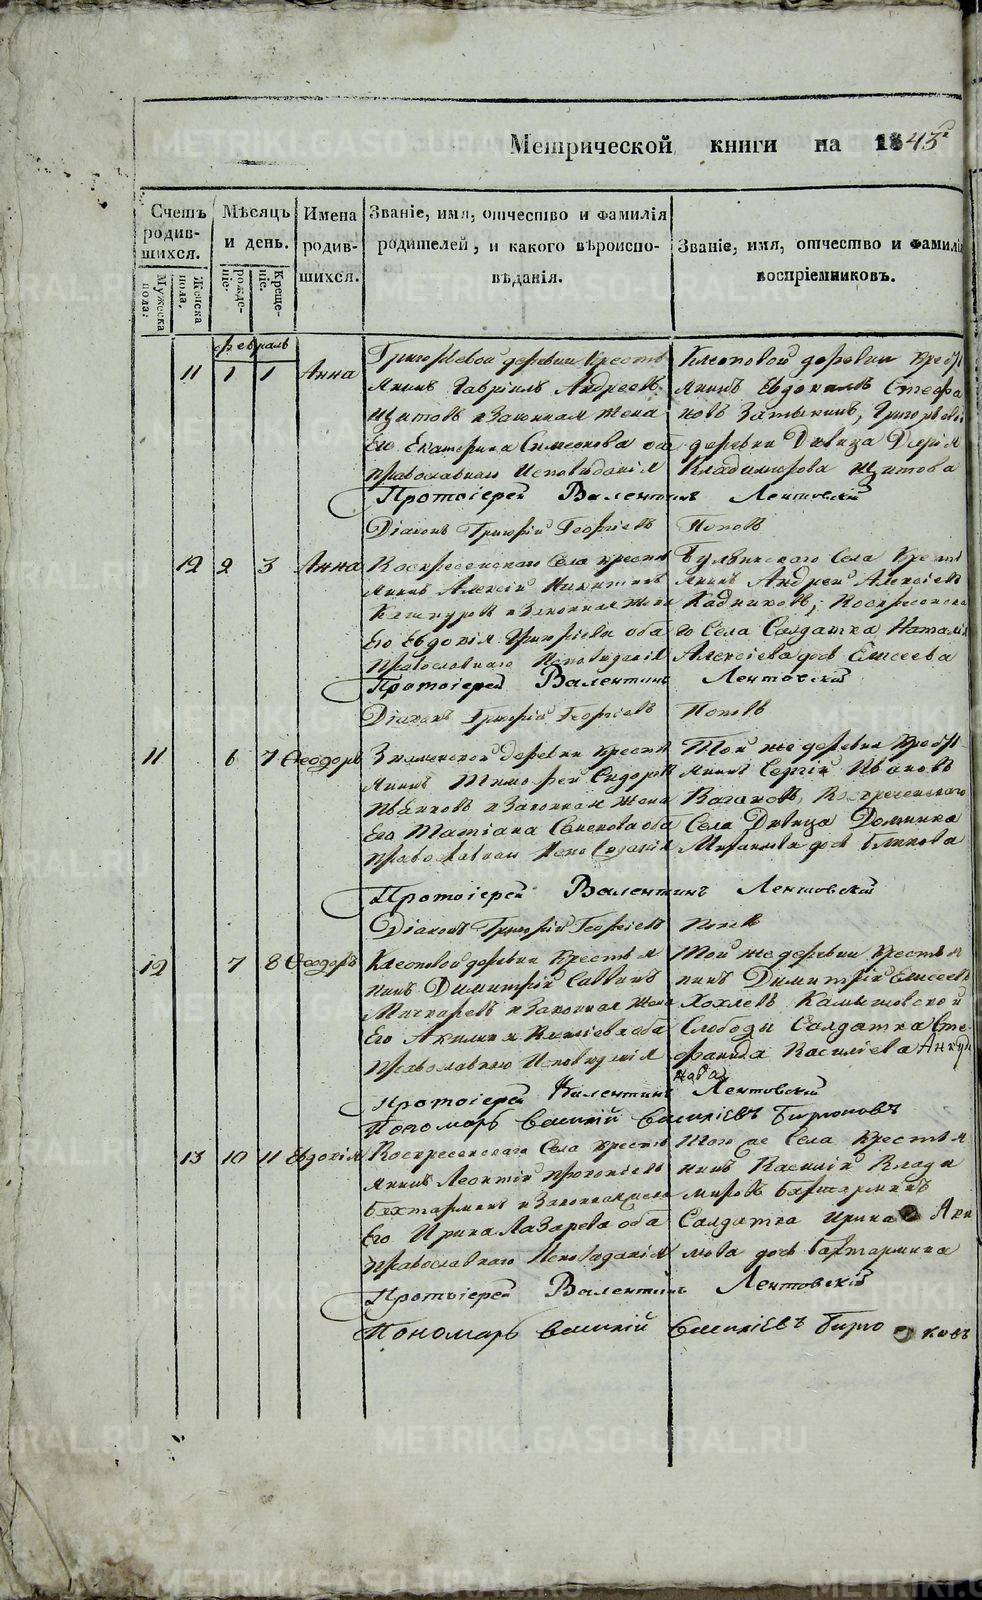 Метрической книги на 1843г
Счетъ родив-шихся.
Мужеска пола.
Женска пола.
Мѣсяцъ и день.
Рожде-ніе.
Креще-ніе.
Имена родив-шихся.
Званіе, имя, отчество и фамилія
родителей, и какого вѣроиспо-
вѣданія.
Званіе, имя, отчество и фамилі
воспріемниковъ.
февраль
11 1 1 Анна
Григорьевой деревни крестья
янинъ Гавріилъ Андреевъ
Щитовъ и законная жена
Его Екатерина Симеонова оба
православнаго исповѣданія
Клеоповой деревни
янинъ Евдокимъ Стефа
новъ Затыкинъ, Григорьевой
деревни Дѣвица Дарія
Владимірова Щитова
Протоіерей Валентинъ Лентовскій
Діаконъ Григорій Георгіевъ Поповъ
12 2 3 Анна
Воскресенскаго Села крестья
янинъ Алексій Никитинъ
и законная жена
Его Евдокія Григорьева оба
православнаго исповѣданія
Села крестья
янинъ Андрей Алексіевъ
Кадниковъ, Воскресенска
го Села Солдатка Наталія
Алексіева дочь Елисеева
Протоіерей Валентинъ Лентовскій
Діаконъ Григорій Георгіевъ Поповъ
11 6 7 Ѳеодоръ
Знаменской деревни крестья
янинъ Тимофей Сидоровъ
и законная жена
Его Татіана Семенова оба
православнаго исповѣданія
Той же деревни
янинъ Сергій Ивановъ
Ваганов, Воскресенскаго
Села Дѣвица Домника
дочь Блинова
Протоіерей Валентинъ Лентовскій
Діаконъ Григорій Георгіевъ Поповъ
12 7 8 Ѳеодоръ
Клеоповой деревни крестья
нинъ Димитрій Саввинъ
и законная жена
Его Акилина Василіева оба
православнаго исповѣданія
Той же деревни крестья
нинъ Димитрій Елисеевъ
Хохлевъ Камышевской
Слободы Солдатка Сте
фанида Василіева
Протоіерей Валентинъ Лентовскій
Пономарь Василій Василіевъ Бирюковъ
13 10 11 Евдокія
Воскресенскаго Села крестья
янинъ Леонтій Прокопіевъ
Бахтарминъ и законная жена
Его Ирина Лазарева оба
православнаго исповѣданія
Того же Села крестья
нинъ Василій Влади
міровъ Бахтарминъ
Солдатка Ирина
дочь Бахтармина
Протоіерей Валентинъ Лентовскій
Пономарь Василій Василіевъ Бирюковъ